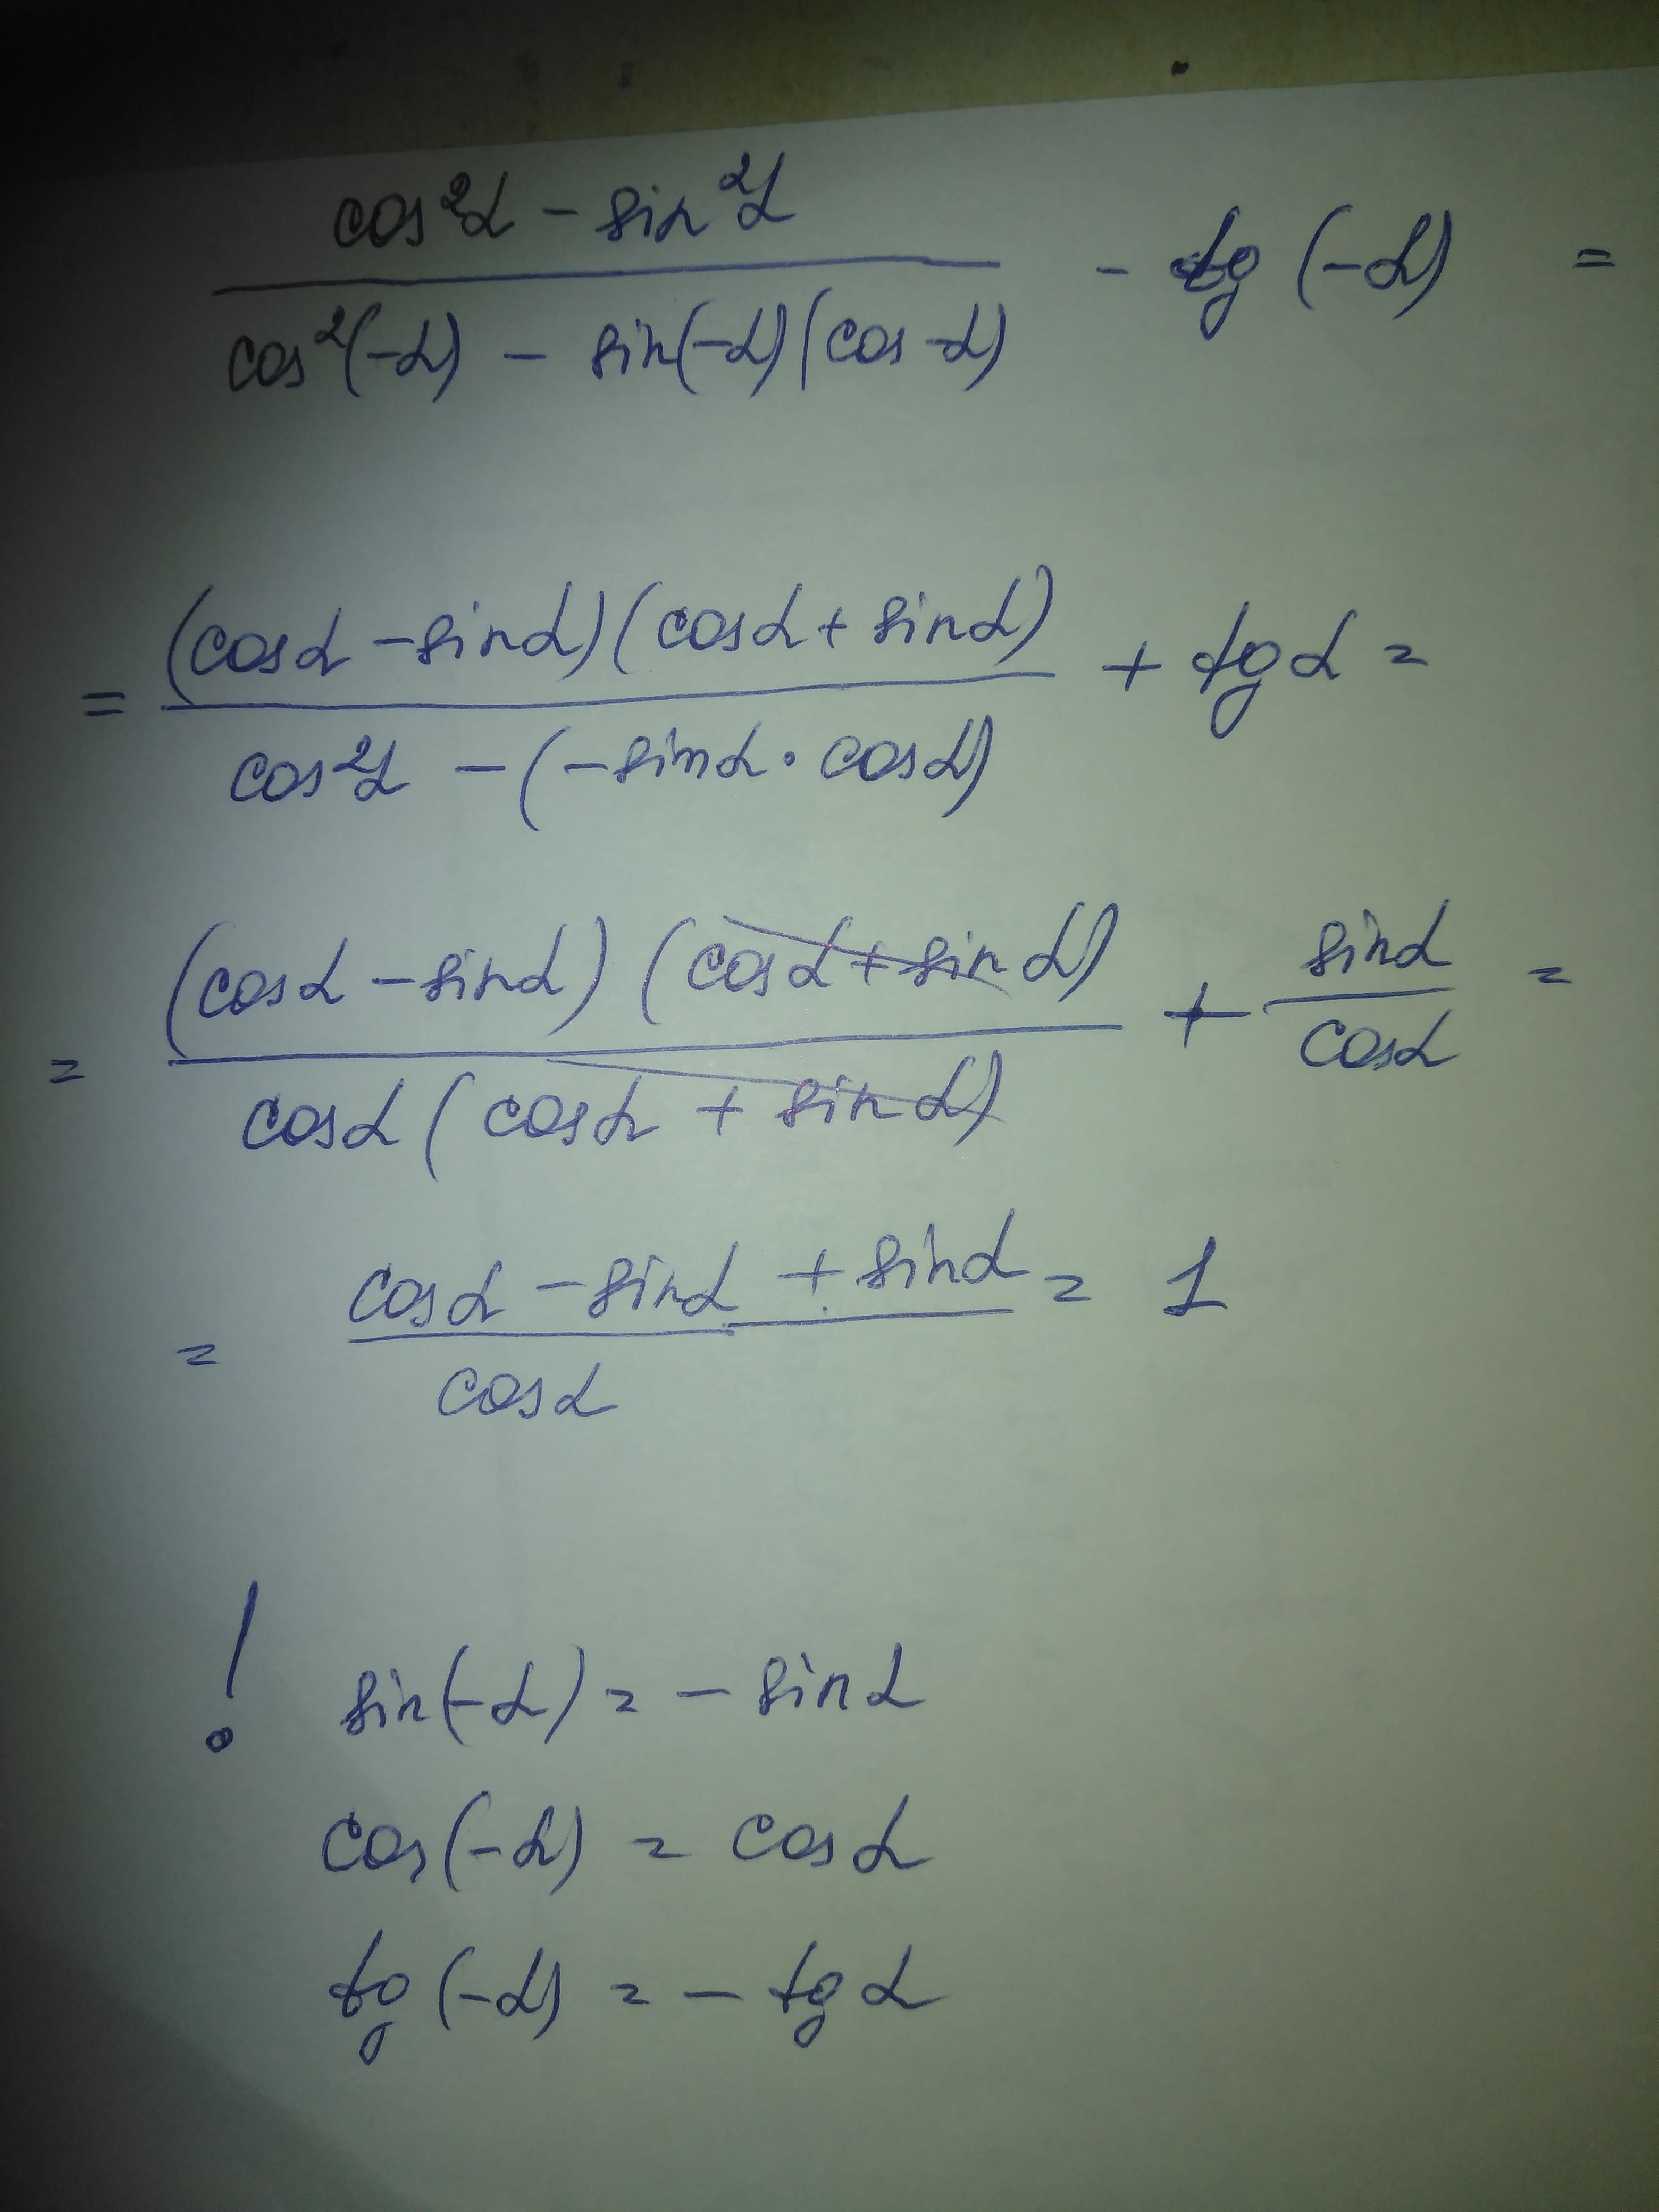 (cos²α - sin²α) / (cos²(-α) - sin(-α)(cos -α)) - tg (-α) =
= (cosα - sinα)(cosα + sinα) / (cos²α - (-sinα · cosα)) + tgα =
= (cosα - sinα) (cosα + sinα) / (cosα (cosα + sinα)) + sinα / cosα =
= (cosα - sinα + sinα) / cosα = 1
! sin(-α) = - sinα
cos(-α) = cosα
tg (-α) = - tgα